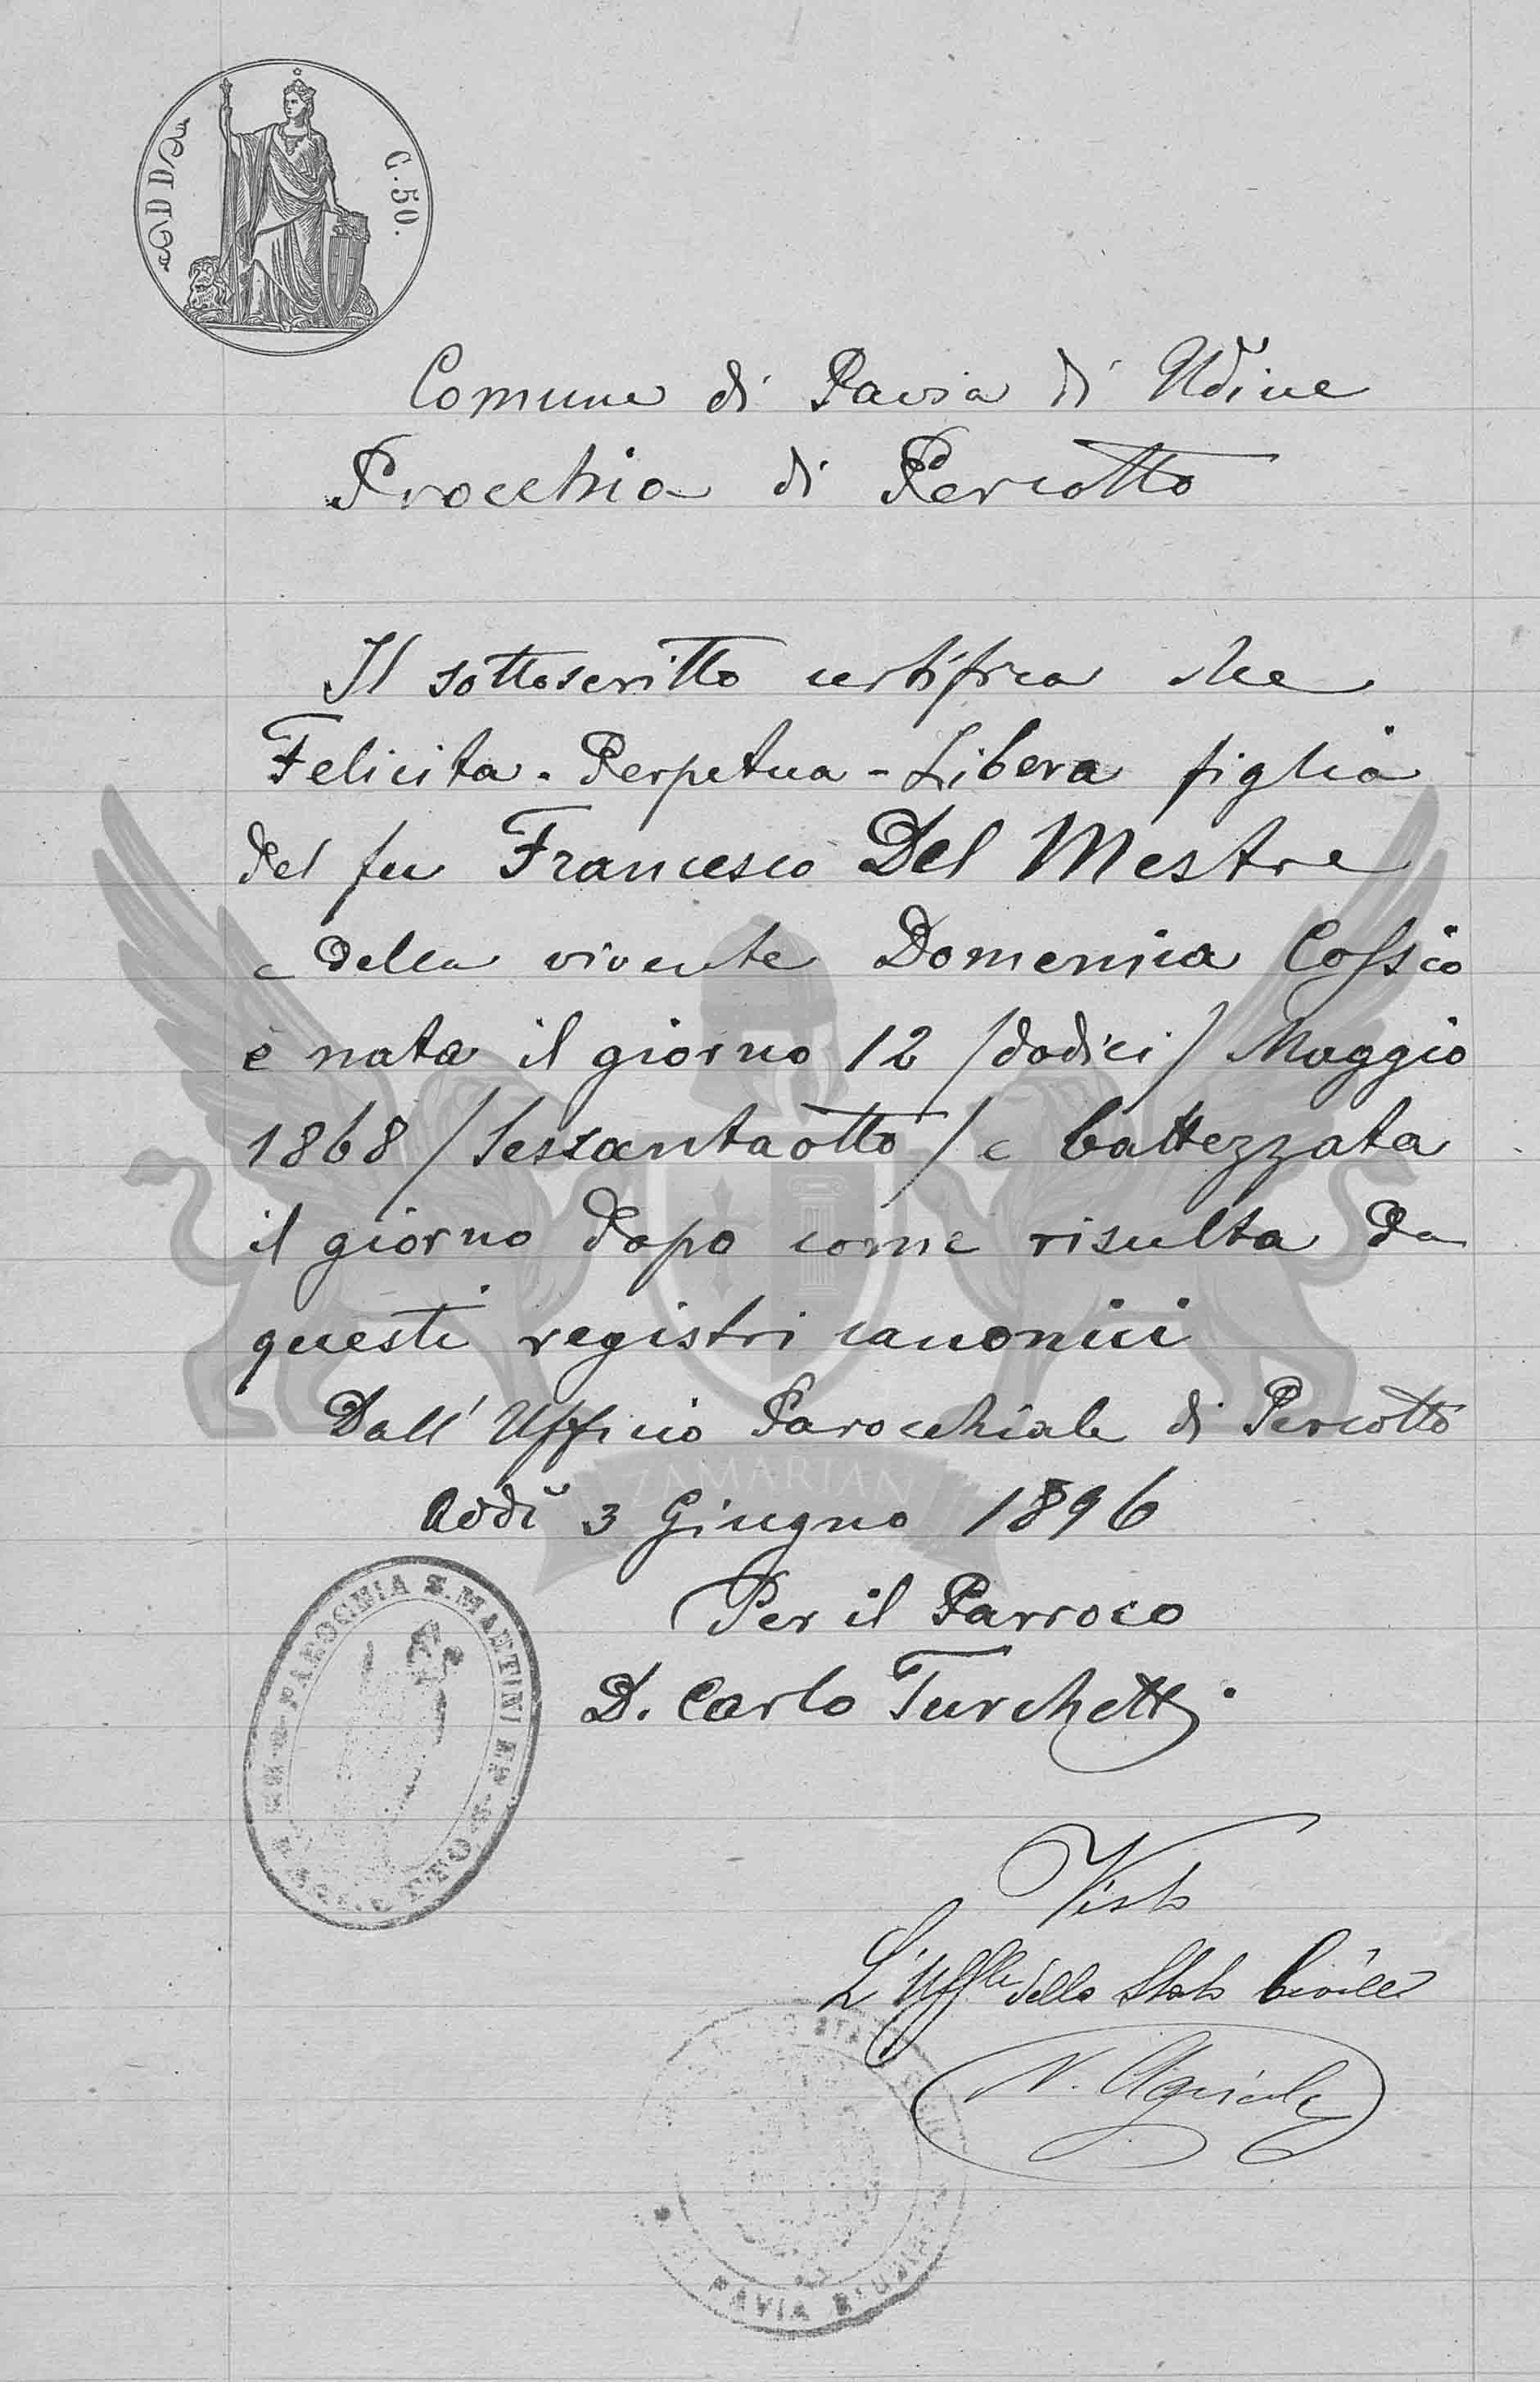 C. 50.
Comune di Pavia di Udine
Procchia di Percotto
Il sottoscritto certifica che
Felicita - Perpetua - Libera figlia
del fu Francesco Del Mestre
e della vivente Domenica Cossio
è nata il giorno 12 /dodici/ Maggio
1868 /sessantaotto/ e battezzata
il giorno dopo come risulta da
questi registri canonici
Dall' Ufficio Parocchiale di Percotto
Addì 3 Giugno 1896
ZAMARIAN
Per il Parroco
D. Carlo Turchetti
PAROCHIA S. MARTINI EP
Visto
L'Uffle dello Stato Civile
PAVIA